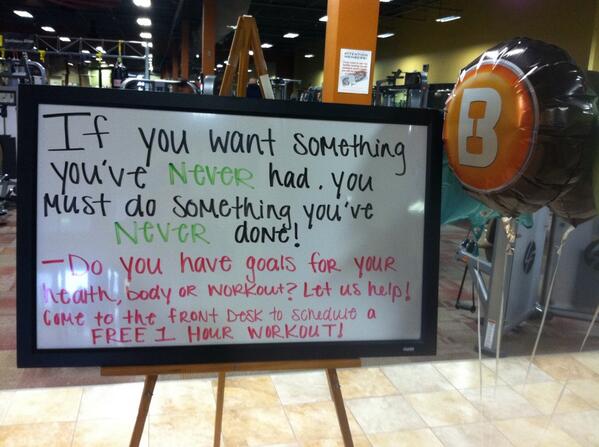 If you want something
you've never had. you
must do something you've
never done!
- Do you have goals for your
health, body or workout? Let us help!
Come to the front desk to schedule a
FREE 1 Hour Workout!
ATTENTION
B